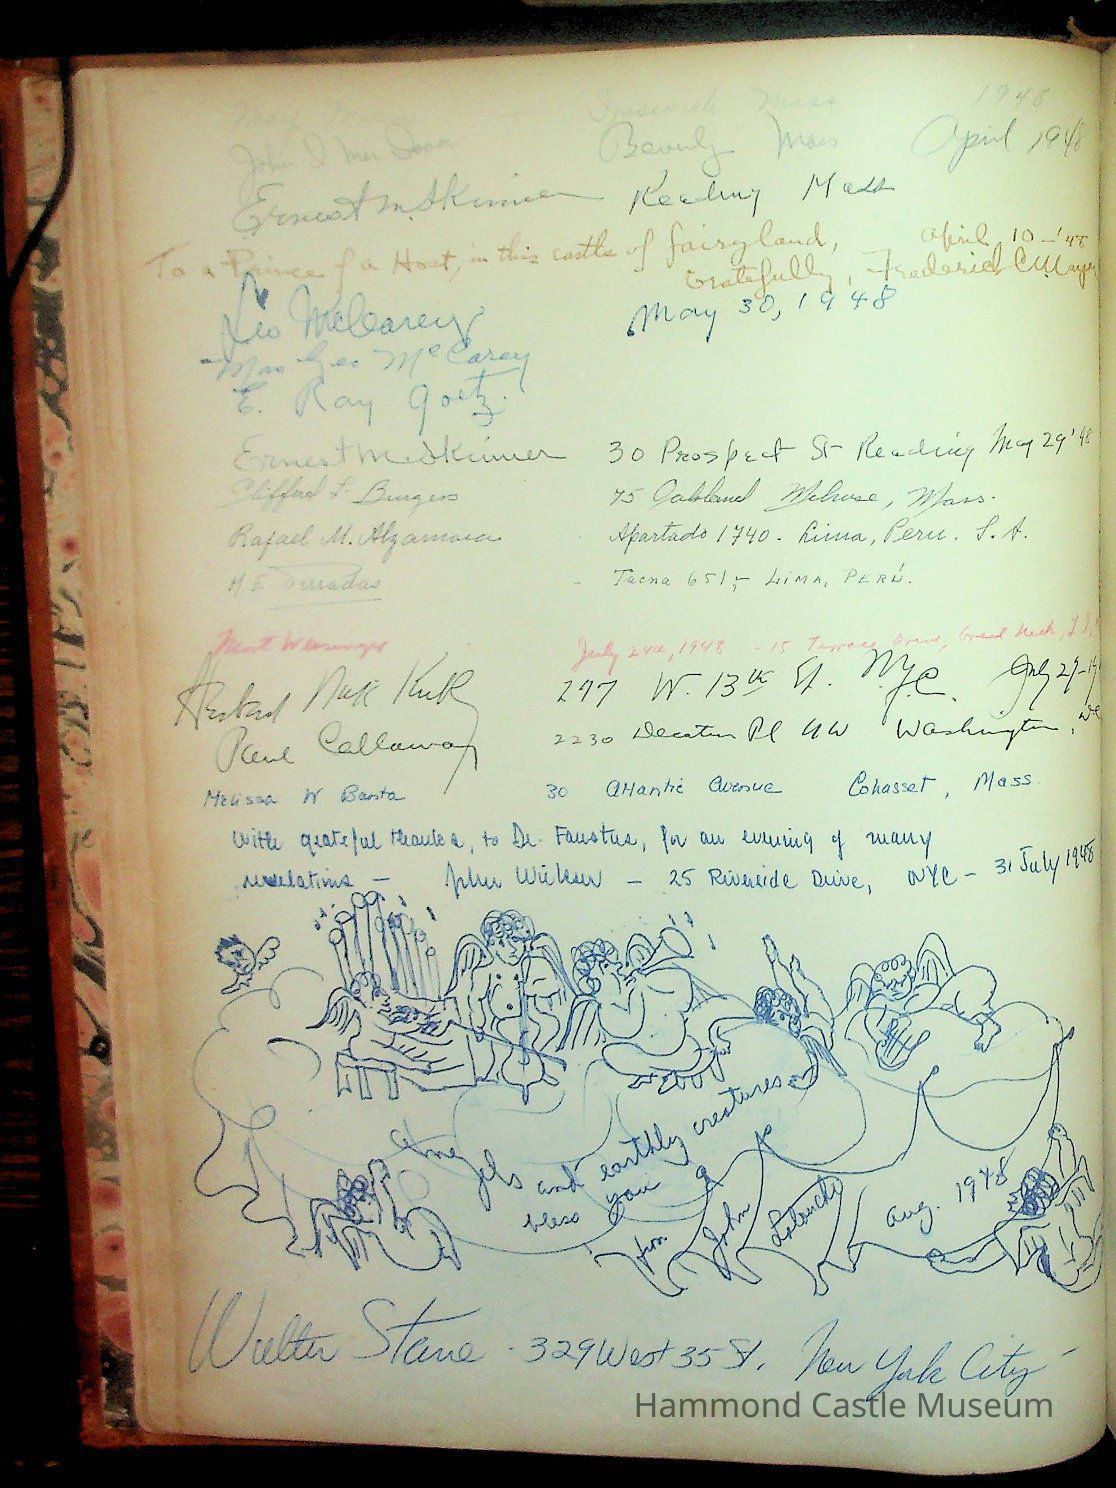 Ipswich Mass 1948
Beverly Mass April 1948
Ernest M. Skinner Reading Mass
To a Prince of a Host, in this castle of fairyland, April 10 - '48
Gratefully, Frederick C. Mayer
Leo McCarey May 30, 1948
Mrs Leo McCarey
E. Ray Goetz.
Ernest M. Skinner 30 Prospect St Reading May 29 '48
Clifford F. Burgess 75 Oakland Melrose, Mass.
Rafael M. Alzamora Apartado 1740. Lima, Peru. S. A.
M E Tacna 651 - LIMA, PERÚ.
July 24th, 1948 - 15 Terrace Drive, Great Neck,
297 W. 13th St. NYC. July 29 -
Paul Callaway 2230 Decatur Pl NW Washington,
Melissa W 30 Atlantic Avenue Cohasset, Mass
With grateful thanks, to Dr. Faustus, for an evening of many
revelations - John Wicker - 25 Riverside Drive, NYC - 31 July 1948
Angels and earthly creatures
bless you
from John Aug. 1948
Walter 329 West 35 St. New York City -
Hammond Castle Museum